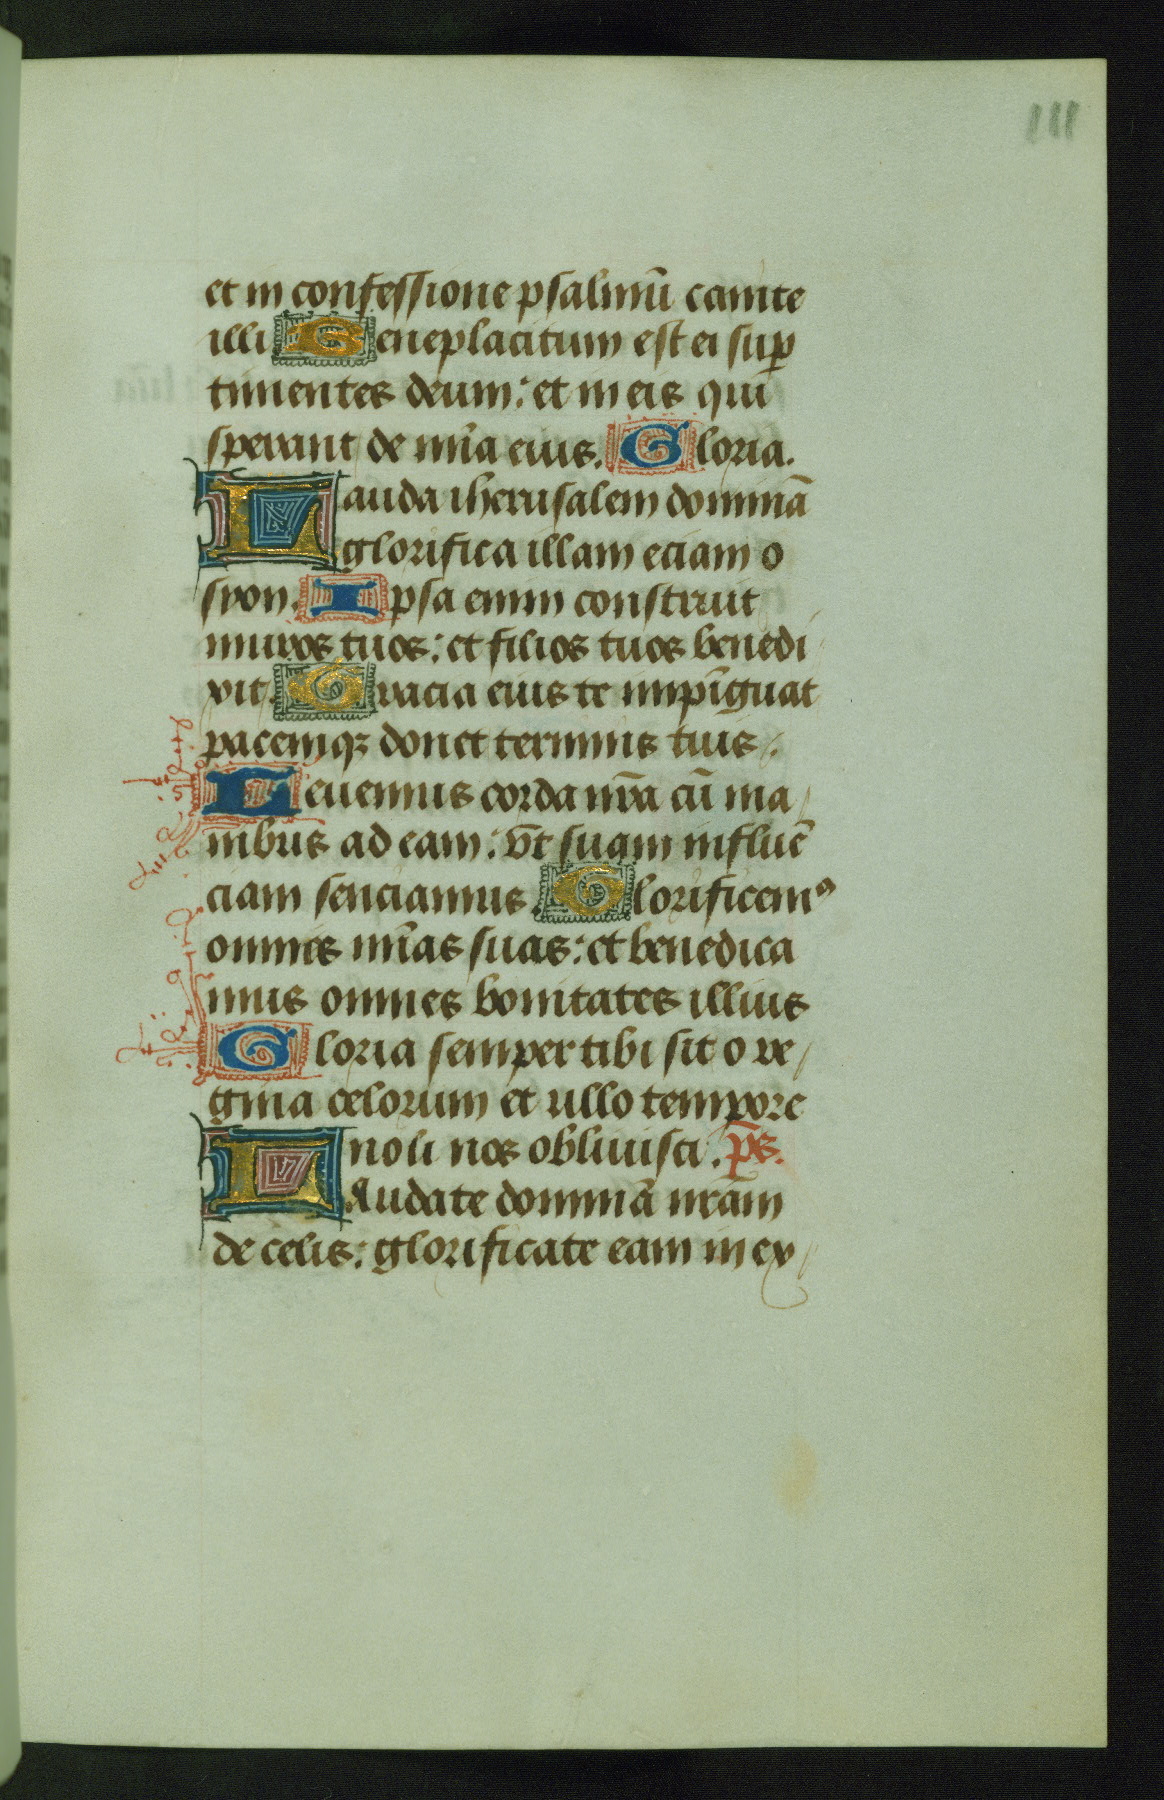 111
et in confessione psalmū canite
illi Geneplacitum est ei sup
timentes deum: et in eis qui
sperant de mīa eius. Gloria.
Lauda iherusalem dominā
glorifica illam eciam o
syon. Ipsa enim construit
muros tuos: et filios tuos benedi
vit. Gracia eius te impīguat
pacemqꝫ donet terminis tuis.
Leuemus corda nr̄a cū ma
nibus ad eam: vt suam influē
ciam senciamus Glorificemꝰ
omnes mīas suas: et benedica
mus omnes bonitates illius
Gloria semper tibi sit o re
gina celorum et ullo tempore
noli nos obliuisci. p̄s.
Laudate dominā nr̄am
de celis: glorificate eam in ex